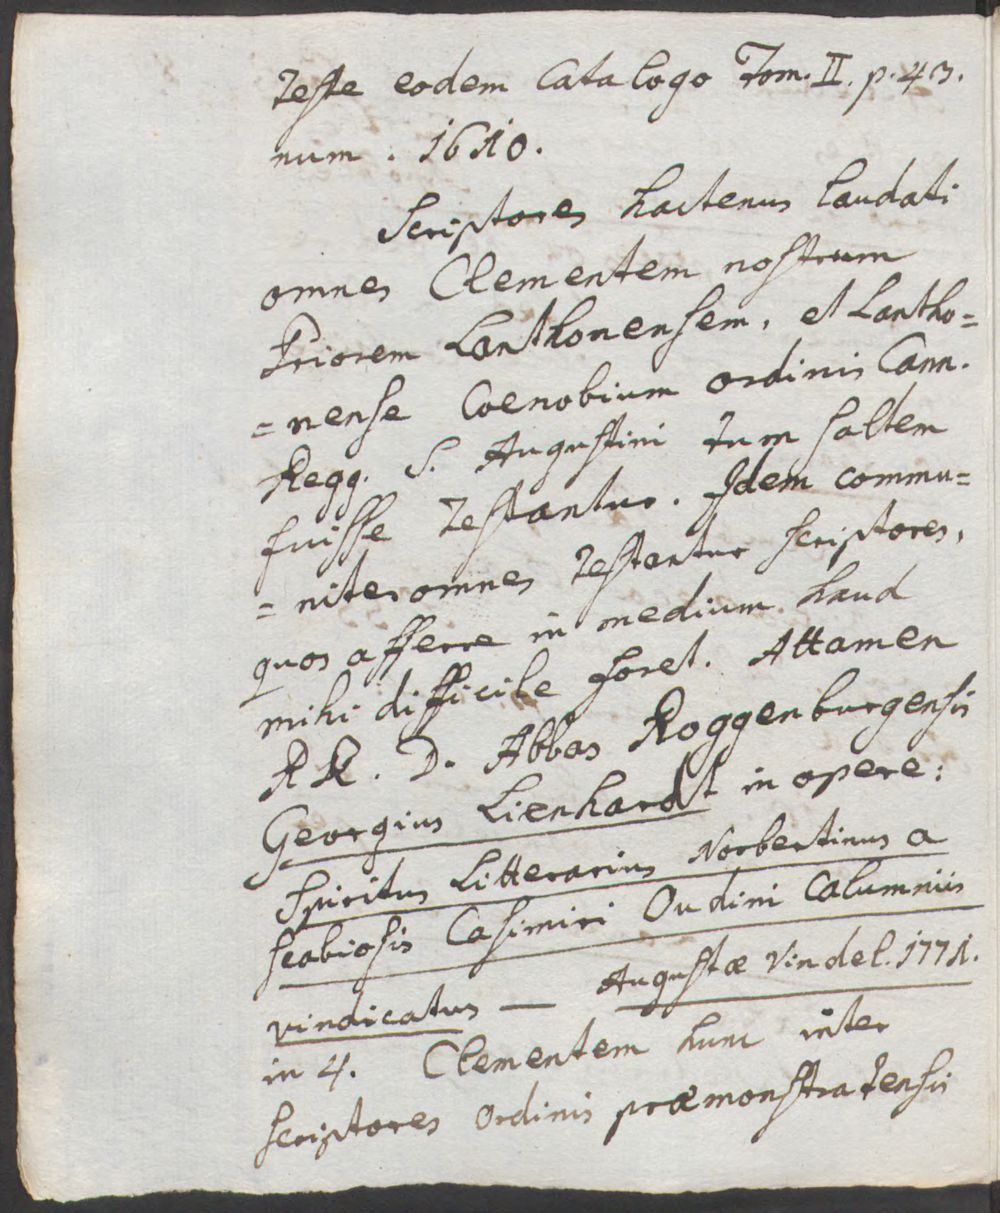 Teste eodem Catalogo Tom. II. p. 43.
num. 1610.
Scriptores hactenus laudati
omnes Clementem nostrum
Priorem Lanthonensem, et Lantho=
=nense Coenobium ordinis Cann.
Regg. S. Augustini tum saltem
fuisse testantur. Idem commu=
=niter omnes testantur scriptores,
quos afferre in medium haud
mihi difficile foret. Attamen
RR. D. Abbas Roggenburgensis
Georgius Lienhardt in opere:
Spiritus Litterarius Norbertinus a
scabiosis Casimiri Oudini Calumniis
vindicatus — Augustæ Vindel. 1771.
in 4. Clementem hunc inter
scriptores Ordinis præmonstratensis